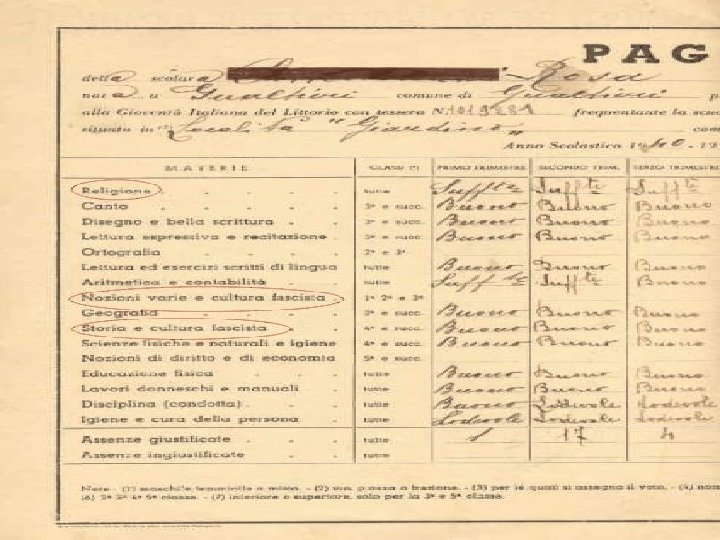 PAG
della scolara Rosa
nata a Gualtieri comune di Gualtieri p
alla Gioventù Italiana del Littorio con tessera N. 1019281 frequentante la scuo
situata in Località "Giardino" com
Anno Scolastico 1940-19
MATERIE CLASSI PRIMO TRIMESTRE SECONDO TRIM. TERZO TRIMESTRE
Religione tutte Suffte Suffte Suffte
Canto 3ª e succ. Buono Buono Buono
Disegno e bella scrittura 3ª e succ. Buono Buono Buono
Lettura espressiva e recitazione 3ª e succ. Buono Buono Buono
Ortografia 2ª e 3ª
Lettura ed esercizi scritti di lingua tutte Buono Buono Buono
Aritmetica e contabilità tutte Suffte Suffte Buono
Nozioni varie e cultura fascista 1ª 2ª e 3ª
Geografia 3ª e succ. Buono Buono Buono
Storia e cultura fascista 4ª e succ. Buono Buono Buono
Scienze fisiche e naturali e igiene 4ª e succ. Buono Buono Buono
Nozioni di diritto e di economia 5ª e succ.
Educazione fisica tutte Buono Buono Buono
Lavori donneschi e manuali tutte Buono Buono Buono
Disciplina (condotta) tutte Buono Lodevole Lodevole
Igiene e cura della persona tutte Lodevole Lodevole Lodevole
Assenze giustificate tutte 1 17 4
Assenze ingiustificate tutte
Note - (1) maschile femminile o mista. - (2) via, piazza o frazione. - (3) per le quali si assegna il voto. - (4) non
(6) 2ª 3ª 4ª 5ª classe. - (7) inferiore o superiore, solo per la 3ª e 5ª classe.